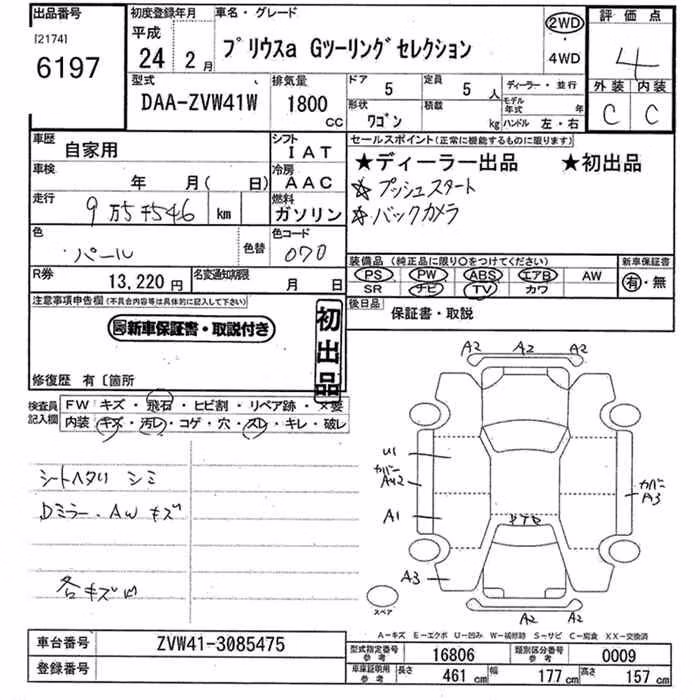 出品番号
[2174]
6197
初度登録年月
平成
24 2月
車名・グレード
プリウスa Gツーリングセレクション
2WD
・
4WD
評価点
4
外装 内装
C C
型式
DAA-ZVW41W
排気量
1800 CC
ドア 5
定員 5 人
形状 ワゴン
積載 kg
ディーラー・並行
モデル年式 年
ハンドル 左・右
車歴 自家用
シフト IAT
車検 年 月( 日)
冷房 AAC
走行 9万5千546 km
燃料 ガソリン
色 パール
色替
色コード 070
R券 13,220円
名変通知期限 月 日
セールスポイント(正常に機能するものに限ります)
★ディーラー出品 ★初出品
☆プッシュスタート
☆バックカメラ
装備品(純正品に限り○をつけてください)
PS PW ABS エアB AW
SR ナビ TV カワ
新車保証書
有・無
後日品 保証書・取説
注意事項申告欄(不具合内容等は具体的に記入して下さい)
新車保証書・取説付き
初出品
修復歴 有〔箇所
検査員記入欄
FW キズ・飛石・ヒビ割・リペア跡・×要
内装 キズ・汚レ・コゲ・穴・スレ・キレ・破レ
シートヘタリ シミ
Dミラー・AW キズ
各キズ凹
A2 A2 A2
U1
カバー
A42
カバー
A3
A1
A3
スペア
A2 A2
A-キズ E-エクボ U-凹み W-補修跡 S-サビ C-腐食 XX-交換済
車台番号 ZVW41-3085475
登録番号
型式指定番号 参考 16806
類別区分番号 参考 0009
車庫証明用 参考 長さ 461 cm 幅 177 cm 高さ 157 cm